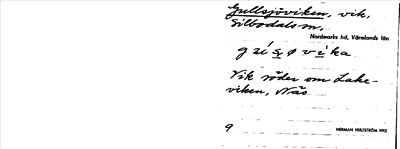 Gullsjöviken, vik,
Silbodals sn,
Nordmarks hd, Värmlands län
Vik söder om Lake-
viken, Näs
9
HERMAN HULTSTRÖM 1912